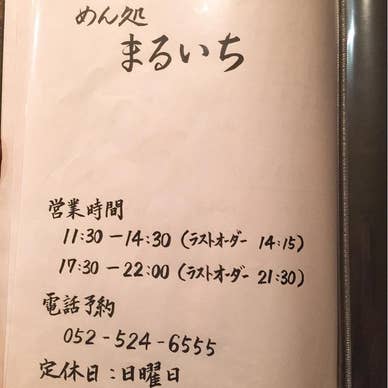 めん処
まるいち
営業時間
11:30ー14:30(ラストオーダー 14:15)
17:30ー22:00(ラストオーダー 21:30)
電話予約
052-524-6555
定休日:日曜日